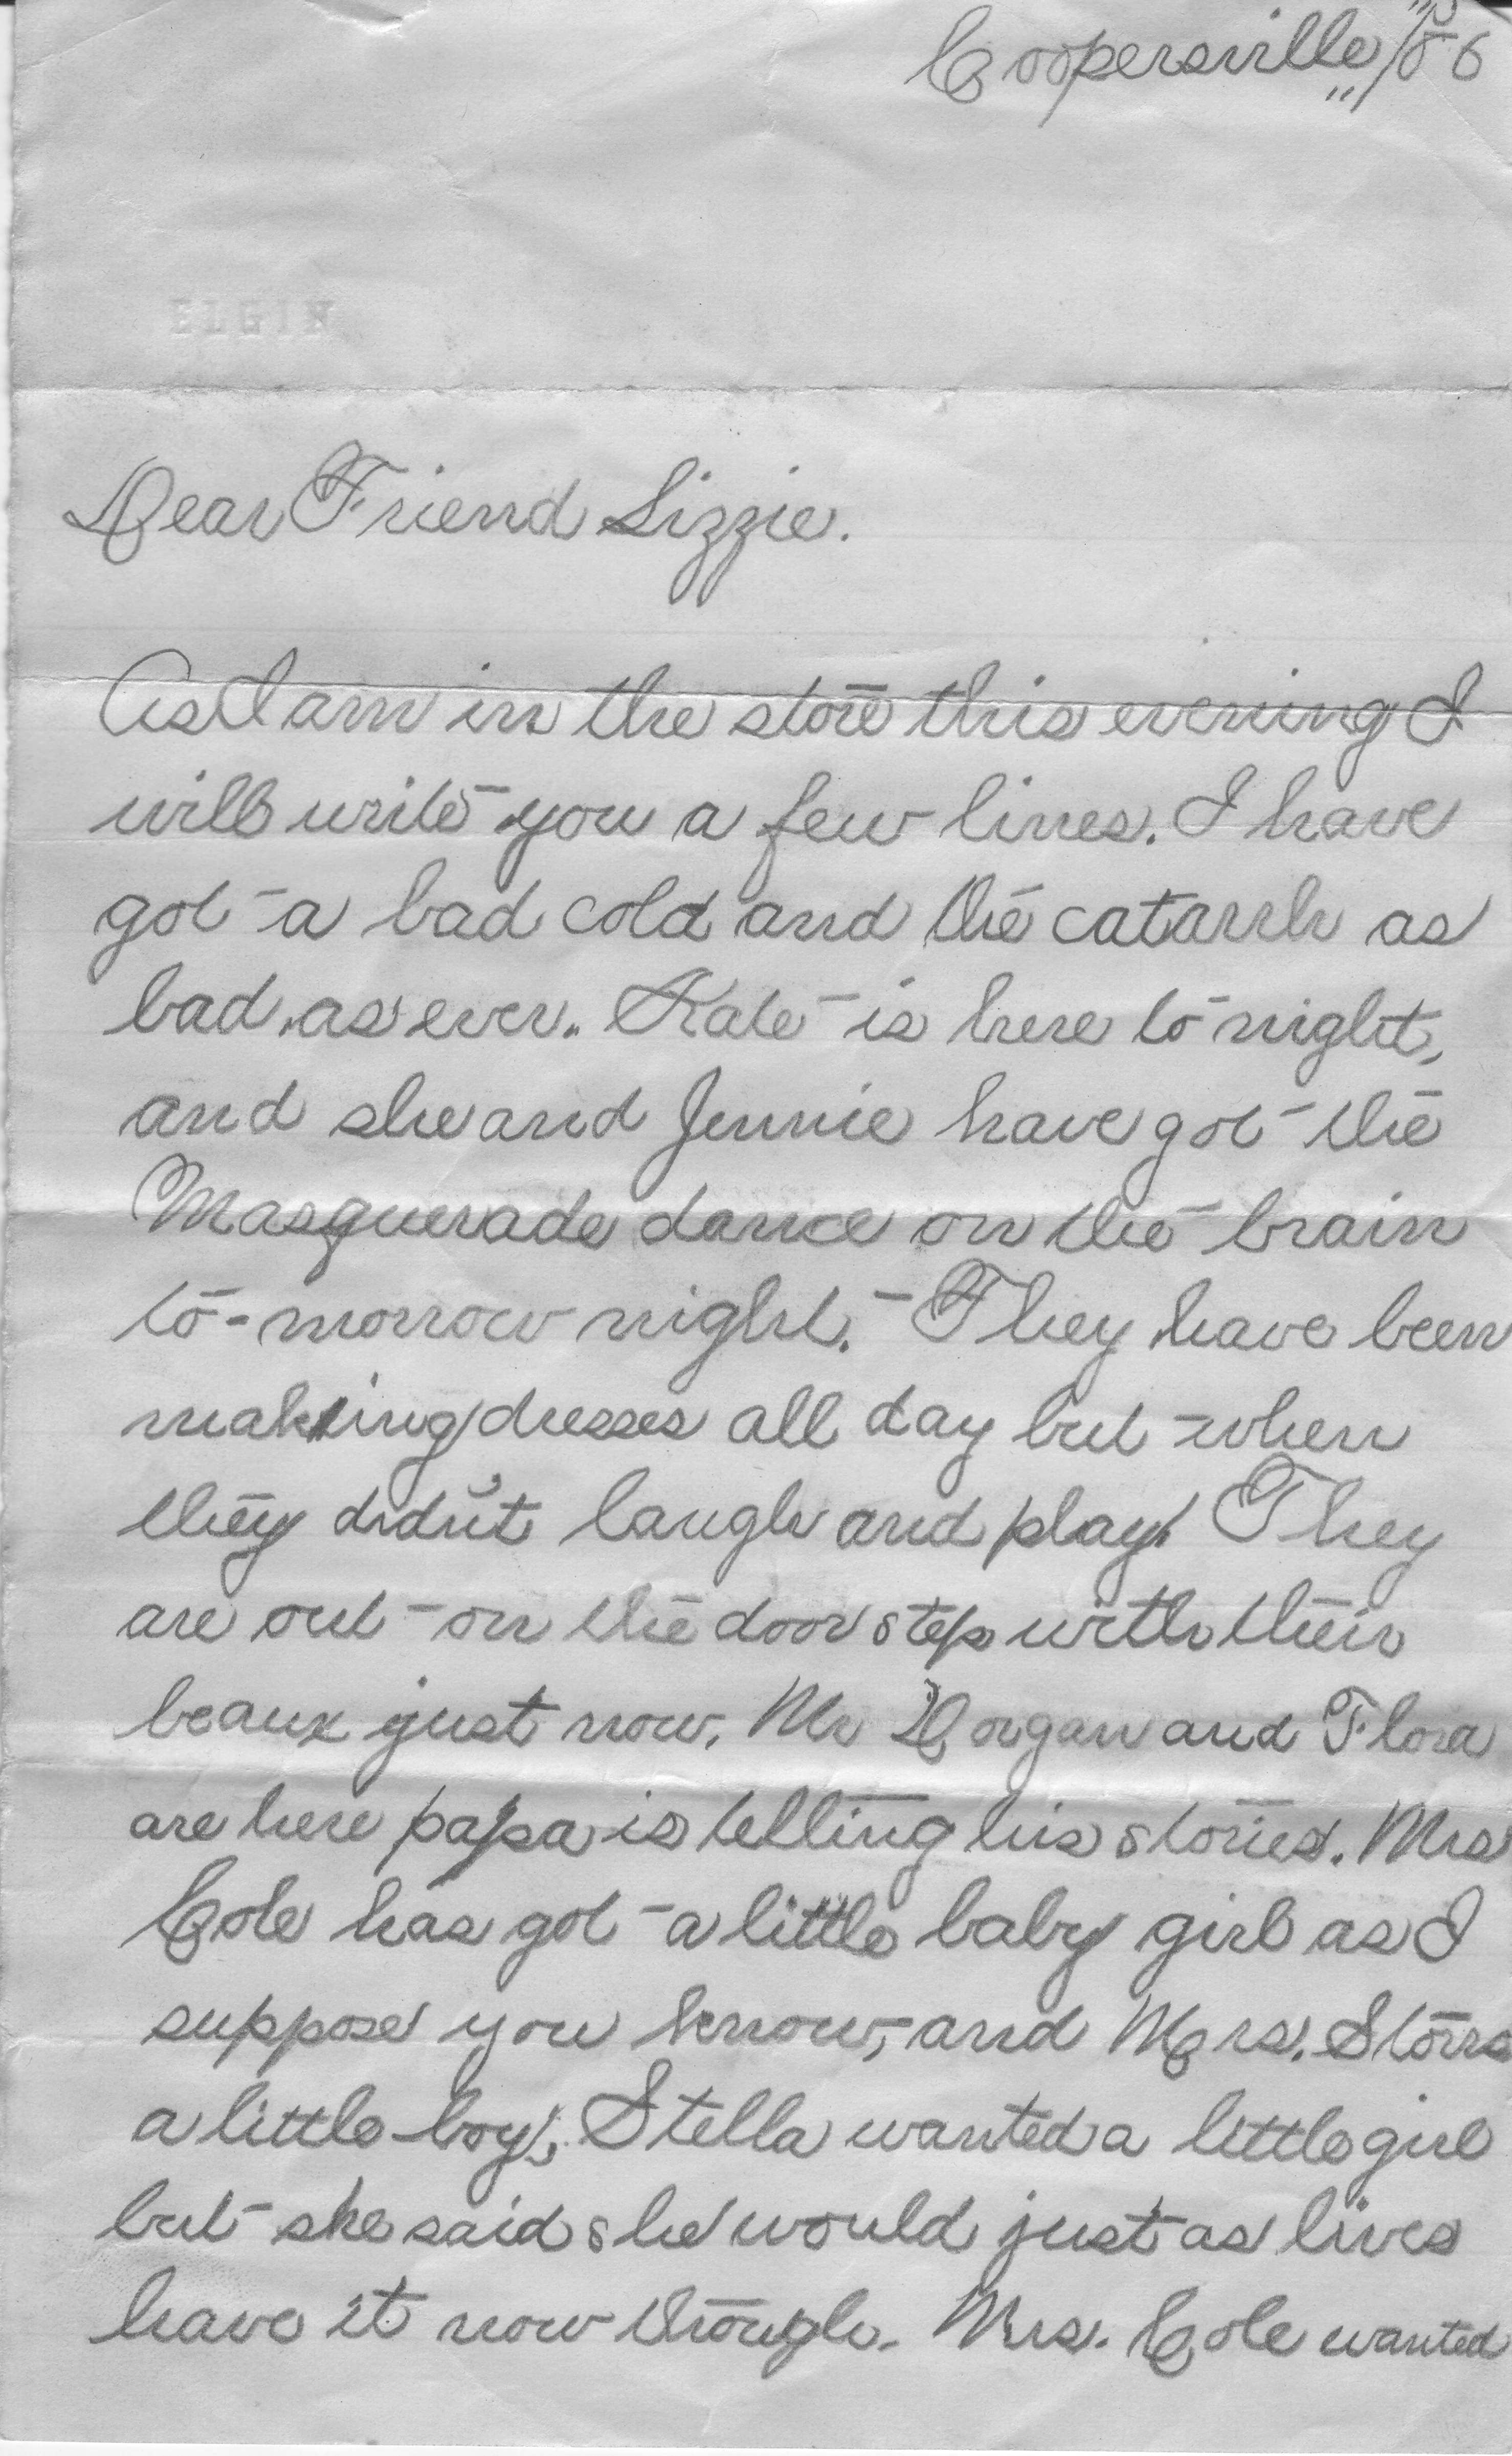 Coopersville
ELGIN
Dear Friend Lizzie.
As I am in the store this evening I
will write you a few lines. I have
got a bad cold and the catarrh as
bad as ever. Kate is here to night,
and she and Jennie have got the
Masquerade dance on the brain
to-morrow night. They have been
making dresses all day but when
they didn't laugh and play. They
are out on the door step with their
beaux just now. Mr and Flora
are here papa is telling his stories. Mrs
Cole has got a little baby girl as I
suppose you know, and Mrs. Storrs
a little boy, Stella wanted a little girl
but she said she would just as lives
have it now though. Mrs. Cole wanted